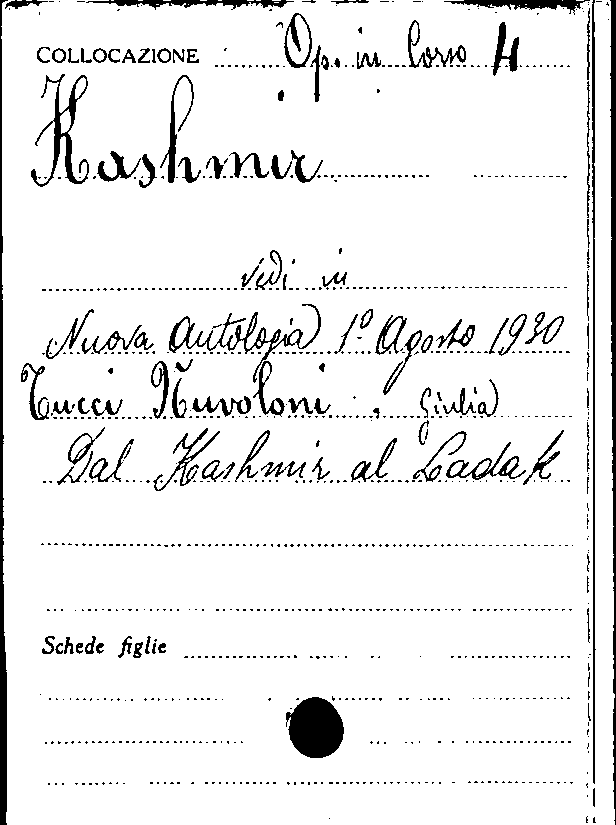 COLLOCAZIONE Op. in Corso 4
Kashmir
vedi in
Nuova Antologia 1º Agosto 1930
Tucci Nuvoloni, Giulia
Dal Kashmir al Ladak
Schede figlie